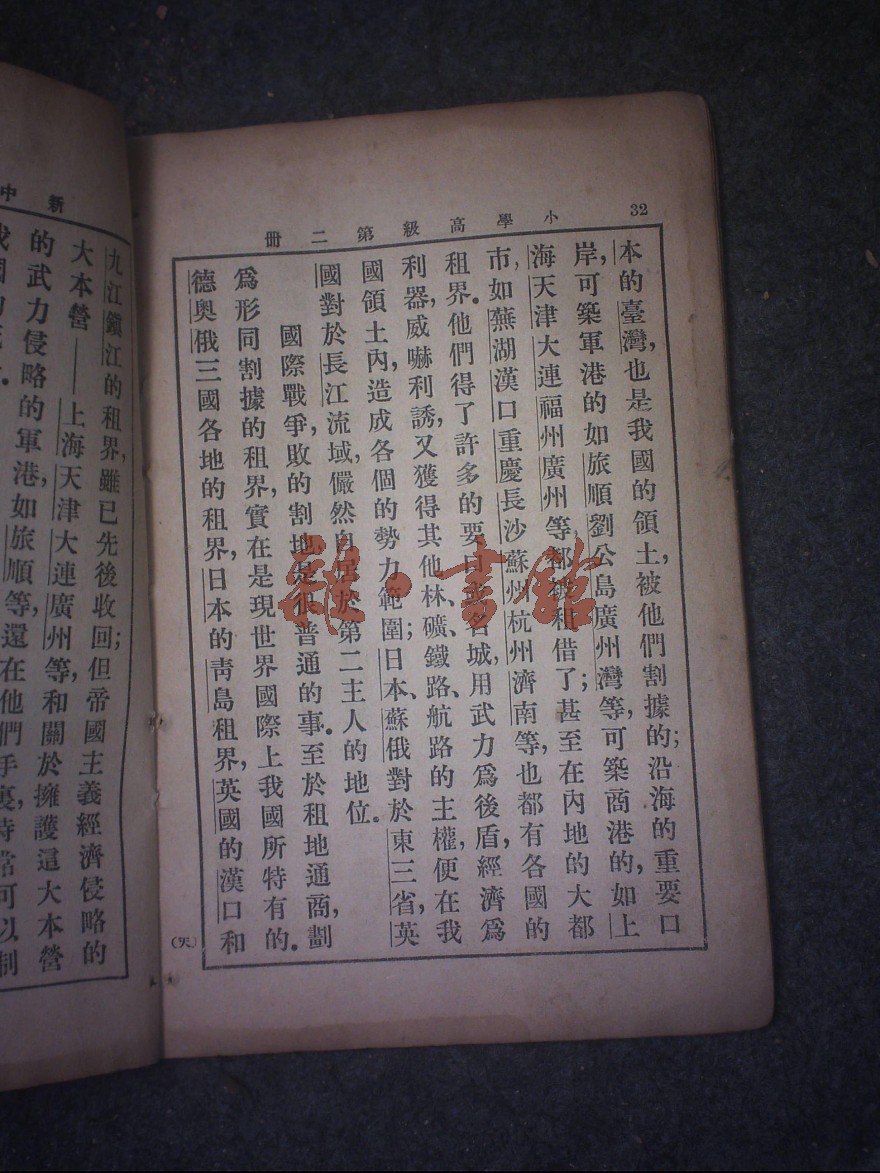 32
小學高級第二冊
本的臺灣,也是我國的領土,被他們割據的;沿海的重要口
岸,可築軍港的如旅順劉公島廣州灣等,可築商港的,如上
海天津大連福州廣州等都被租借了;甚至在內地的大都
市,如蕪湖漢口重慶長沙蘇州杭州濟南等,也都有各國的
租界。他們得了許多的要口
名城,用武力爲後盾,經濟爲
利器,威嚇利誘,又獲得其他林、礦、鐵路、航路的主權,便在我
國領土內,造成各個的勢力範圍;日本、蘇俄對於東三省,英
國對於長江流域,儼然自居於第二主人的地位。
國際戰爭,敗的割地,是很普通的事。至於租地通商,劃
爲形同割據的租界,實在是現世界國際上我國所特有的。
德奧俄三國各地的租界,日本的靑島租界,英國的漢口和
新中
九江鎭江的租界,雖已先後收回;但帝國主義經濟侵略的
大本營——上海天津大連廣州等,和關於擁護這大本營
的武力侵略的軍港,如旅順等,還在他們手裏,時常可以制
雜·書館